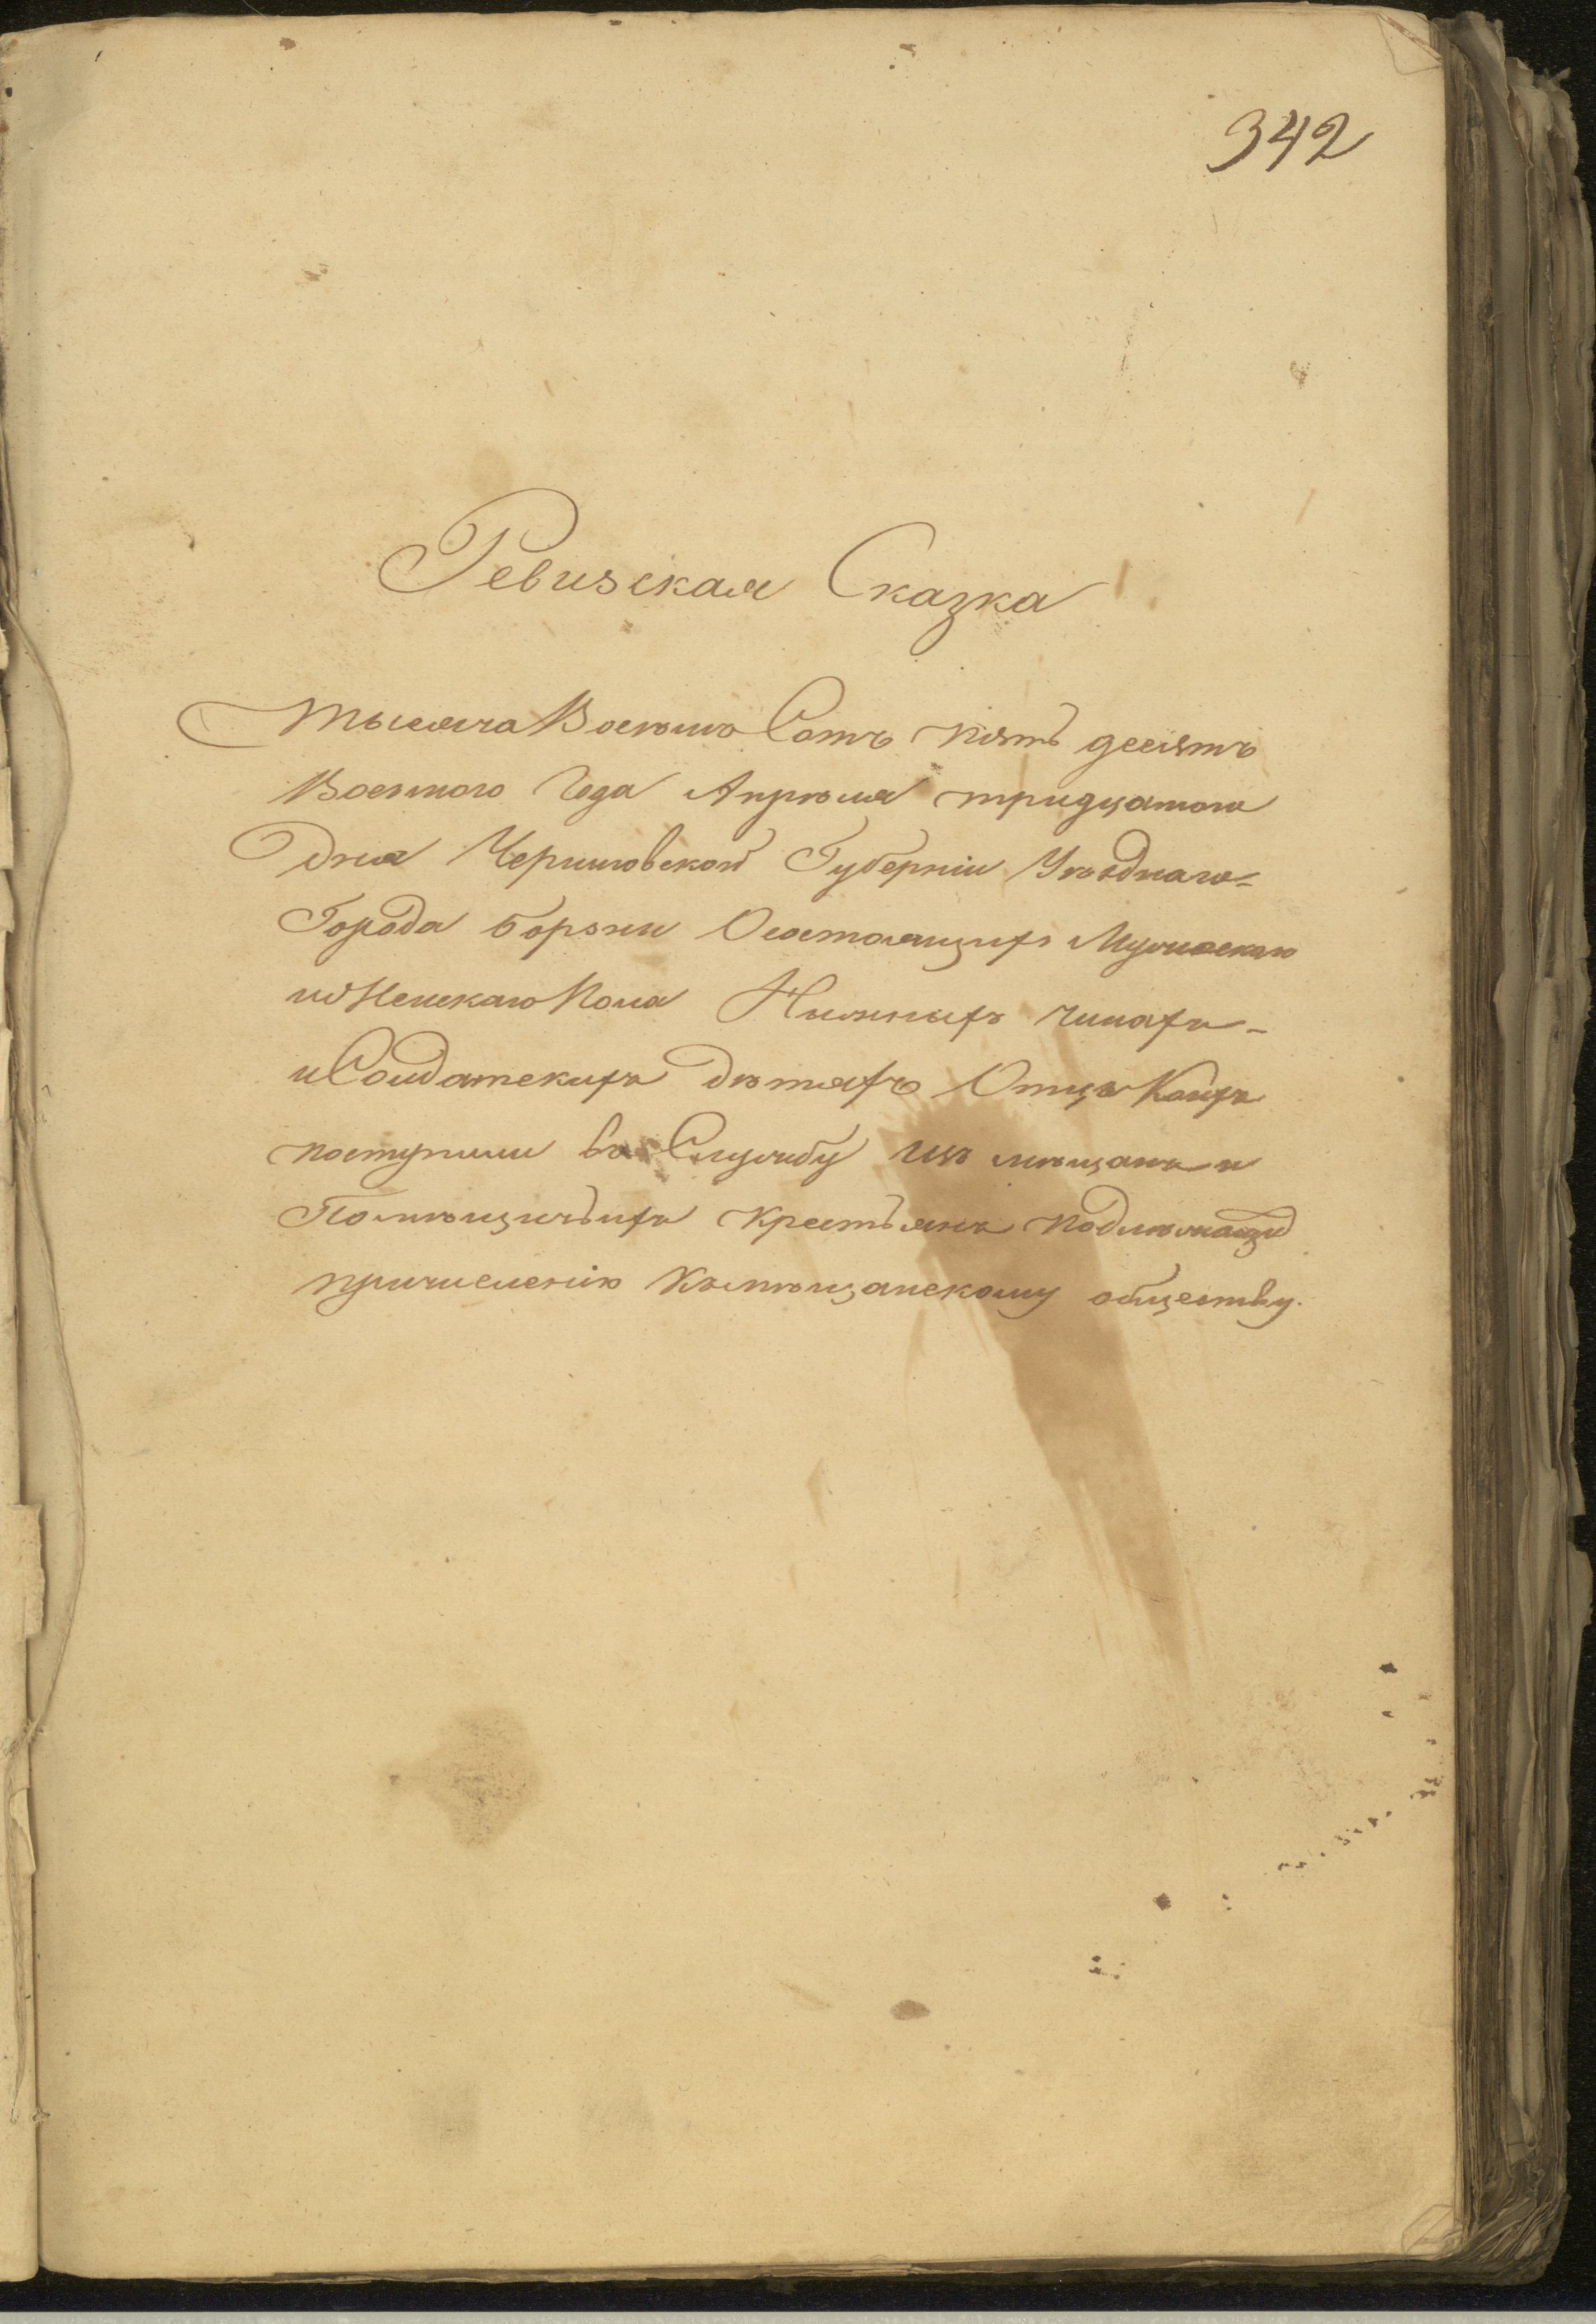 342
Ревизская Сказка
Тысяча Восемьсотъ пять десятъ
Восьмого Года Апрѣля тридцатого
Дня Черниговской Губерніи Уѣзднаго-
Города Борзни О состоящихъ Мужескаго
и Женскаго Пола Нижнихъ чинахъ-
и Солдатскихъ дѣтяхъ Отцы Коихъ
поступили въ Службу изъ мѣщанъ и
Помѣщичьихъ крестьянъ подлежащихъ
причисленію къ мѣщанскому обществу.